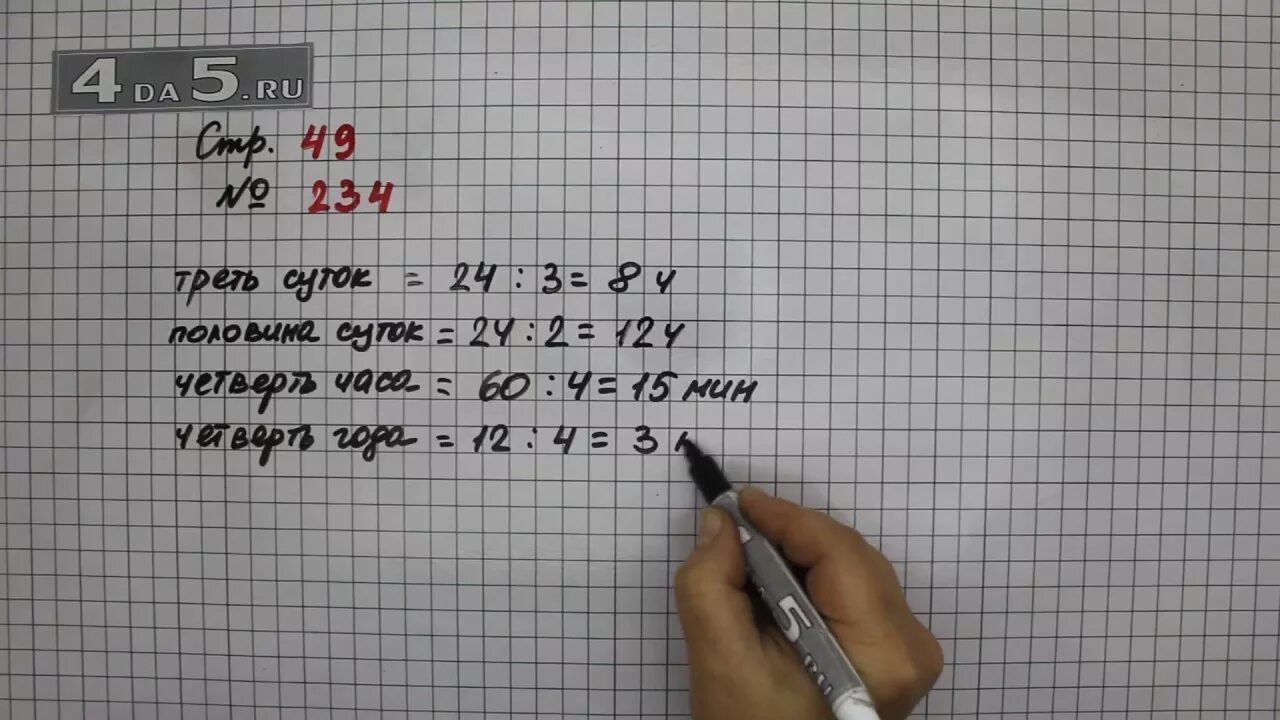 4DA5.RU
Стр. 49
№ 234
треть суток = 24 : 3 = 8 ч
половина суток = 24 : 2 = 12 ч
четверть часа = 60 : 4 = 15 мин
четверть года = 12 : 4 = 3
5.RU